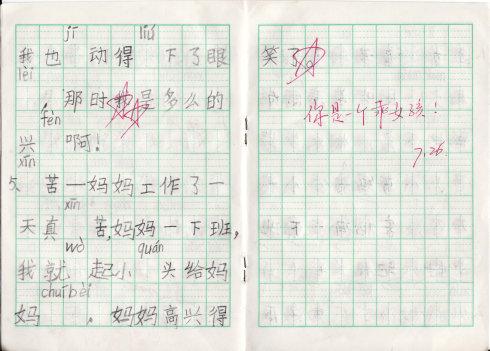 jī liú
我也 动得 下了眼
lèi
那时我是多么的
fèn
兴 啊！
xīn
5、苦——妈妈工作了一
xīn
天真 苦，妈妈一下班，
wò quán
我就 起小 头给妈
chuíbèi
妈 。妈妈高兴得
笑了。
你是一个乖女孩！
7.26.